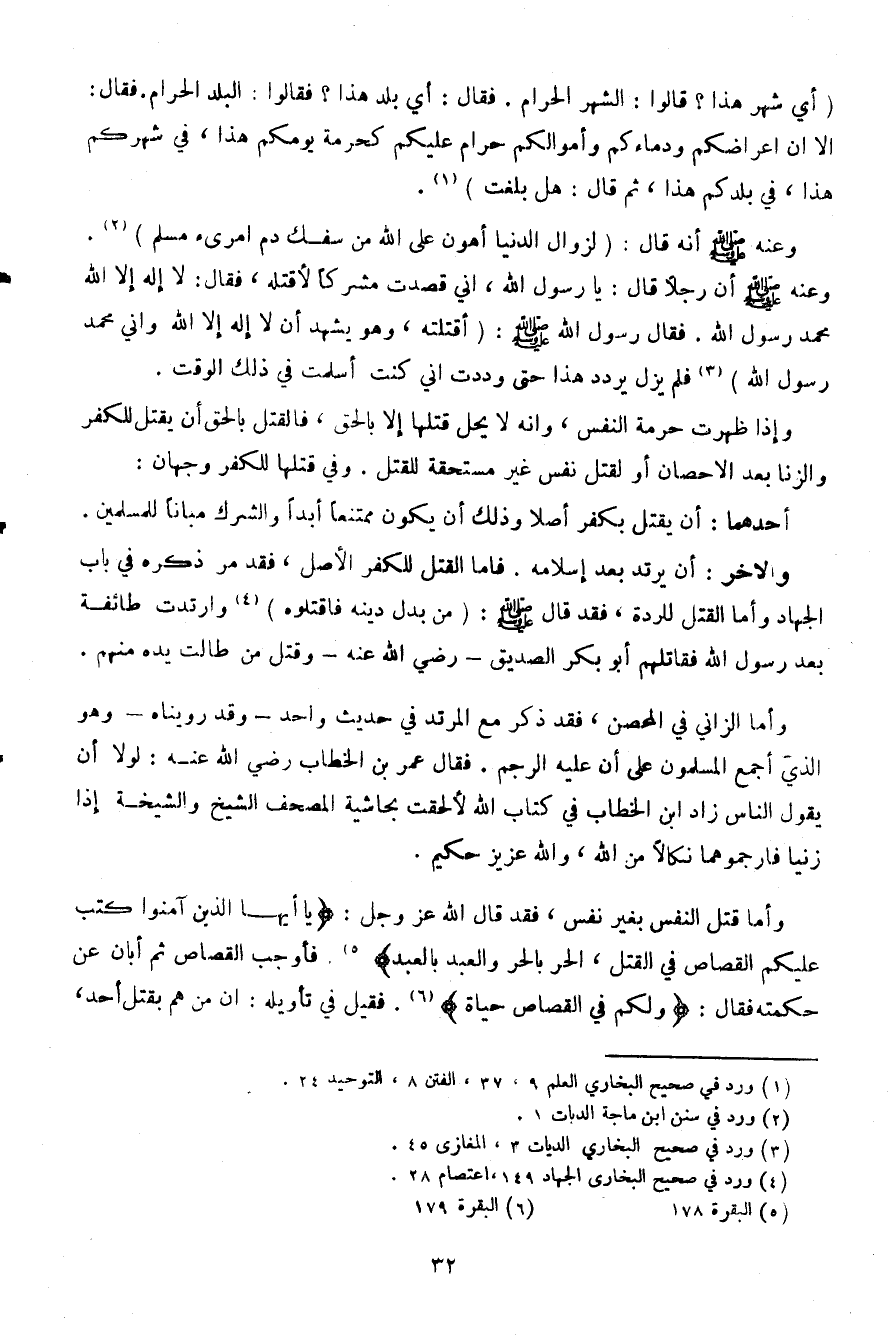 ( أي شهر هذا ؟ قالوا : الشهر الحرام . فقال : أي بلد هذا ؟ فقالوا : البلد الحرام.فقال:
الا ان اعراضكم ودماءكم وأموالكم حرام عليكم كحرمة يومكم هذا ، في شهركم
هذا ، في بلدكم هذا ، ثم قال : هل بلغت ) (١) .
وعنه ﷺ أنه قال : ( لزوال الدنيا أهون على الله من سفك دم امرىء مسلم ) (٢) .
وعنه ﷺ أن رجلاً قال : يا رسول الله ، اني قصدت مشركاً لأقتله ، فقال: لا إله إلا الله
محمد رسول الله . فقال رسول الله ﷺ : ( أقتلته ، وهو يشهد أن لا إله إلا الله واني محمد
رسول الله ) (٣) فلم يزل يردد هذا حتى وددت اني كنت أسلمت في ذلك الوقت .
وإذا ظهرت حرمة النفس ، وانه لا يحل قتلها إلا بالحق ، فالقتل بالحق أن يقتل للكفر
والزنا بعد الاحصان أو لقتل نفس غير مستحقة للقتل . وفي قتلها للكفر وجهان :
أحدهما : أن يقتل بكفر أصلا وذلك أن يكون ممتنعاً أبداً والشرك مباناً للمسلمين .
والاخر : أن يرتد بعد إسلامه . فاما القتل للكفر الأصل ، فقد مر ذكره في باب
الجهاد وأما القتل للردة ، فقد قال ﷺ : ( من بدل دينه فاقتلوه ) (٤) وارتدت طائفة
بعد رسول الله فقاتلهم أبو بكر الصديق – رضي الله عنه – وقتل من طالت يده منهم .
وأما الزاني في المحصن ، فقد ذكر مع المرتد في حديث واحد – وقد رويناه – وهو
الذي أجمع المسلمون على أن عليه الرجم . فقال عمر بن الخطاب رضي الله عنه : لولا أن
يقول الناس زاد ابن الخطاب في كتاب الله لألحقت بحاشية المصحف الشيخ والشيخة إذا
زنيا فارجموهما نكالاً من الله ، والله عزيز حكيم .
وأما قتل النفس بغير نفس ، فقد قال الله عز وجل : ﴿يا أيها الذين آمنوا كتب
عليكم القصاص في القتل ، الحر بالحر والعبد بالعبد﴾ (٥ . فأوجب القصاص ثم أبان عن
حكمته فقال : ﴿ ولكم في القصاص حياة ﴾ (٦) . فقيل في تأويله : ان من هم بقتل أحد،
(١) ورد في صحيح البخاري العلم ٩ ، ٣٧ ، الفتن ٨ ، التوحيد ٢٤ .
(٢) ورد في سنن ابن ماجة الديات ١ .
(٣) ورد في صحيح البخاري الديات ٣ ، المغازى ٤٥ .
(٤) ورد في صحيح البخارى الجهاد ١٤٩ ،اعتصام ٢٨ .
(٥) البقرة ١٧٨ (٦) البقرة ١٧٩
٣٢